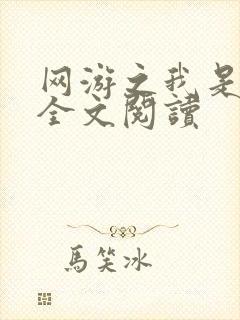 网游之我是
全文閱讀
馬笑冰